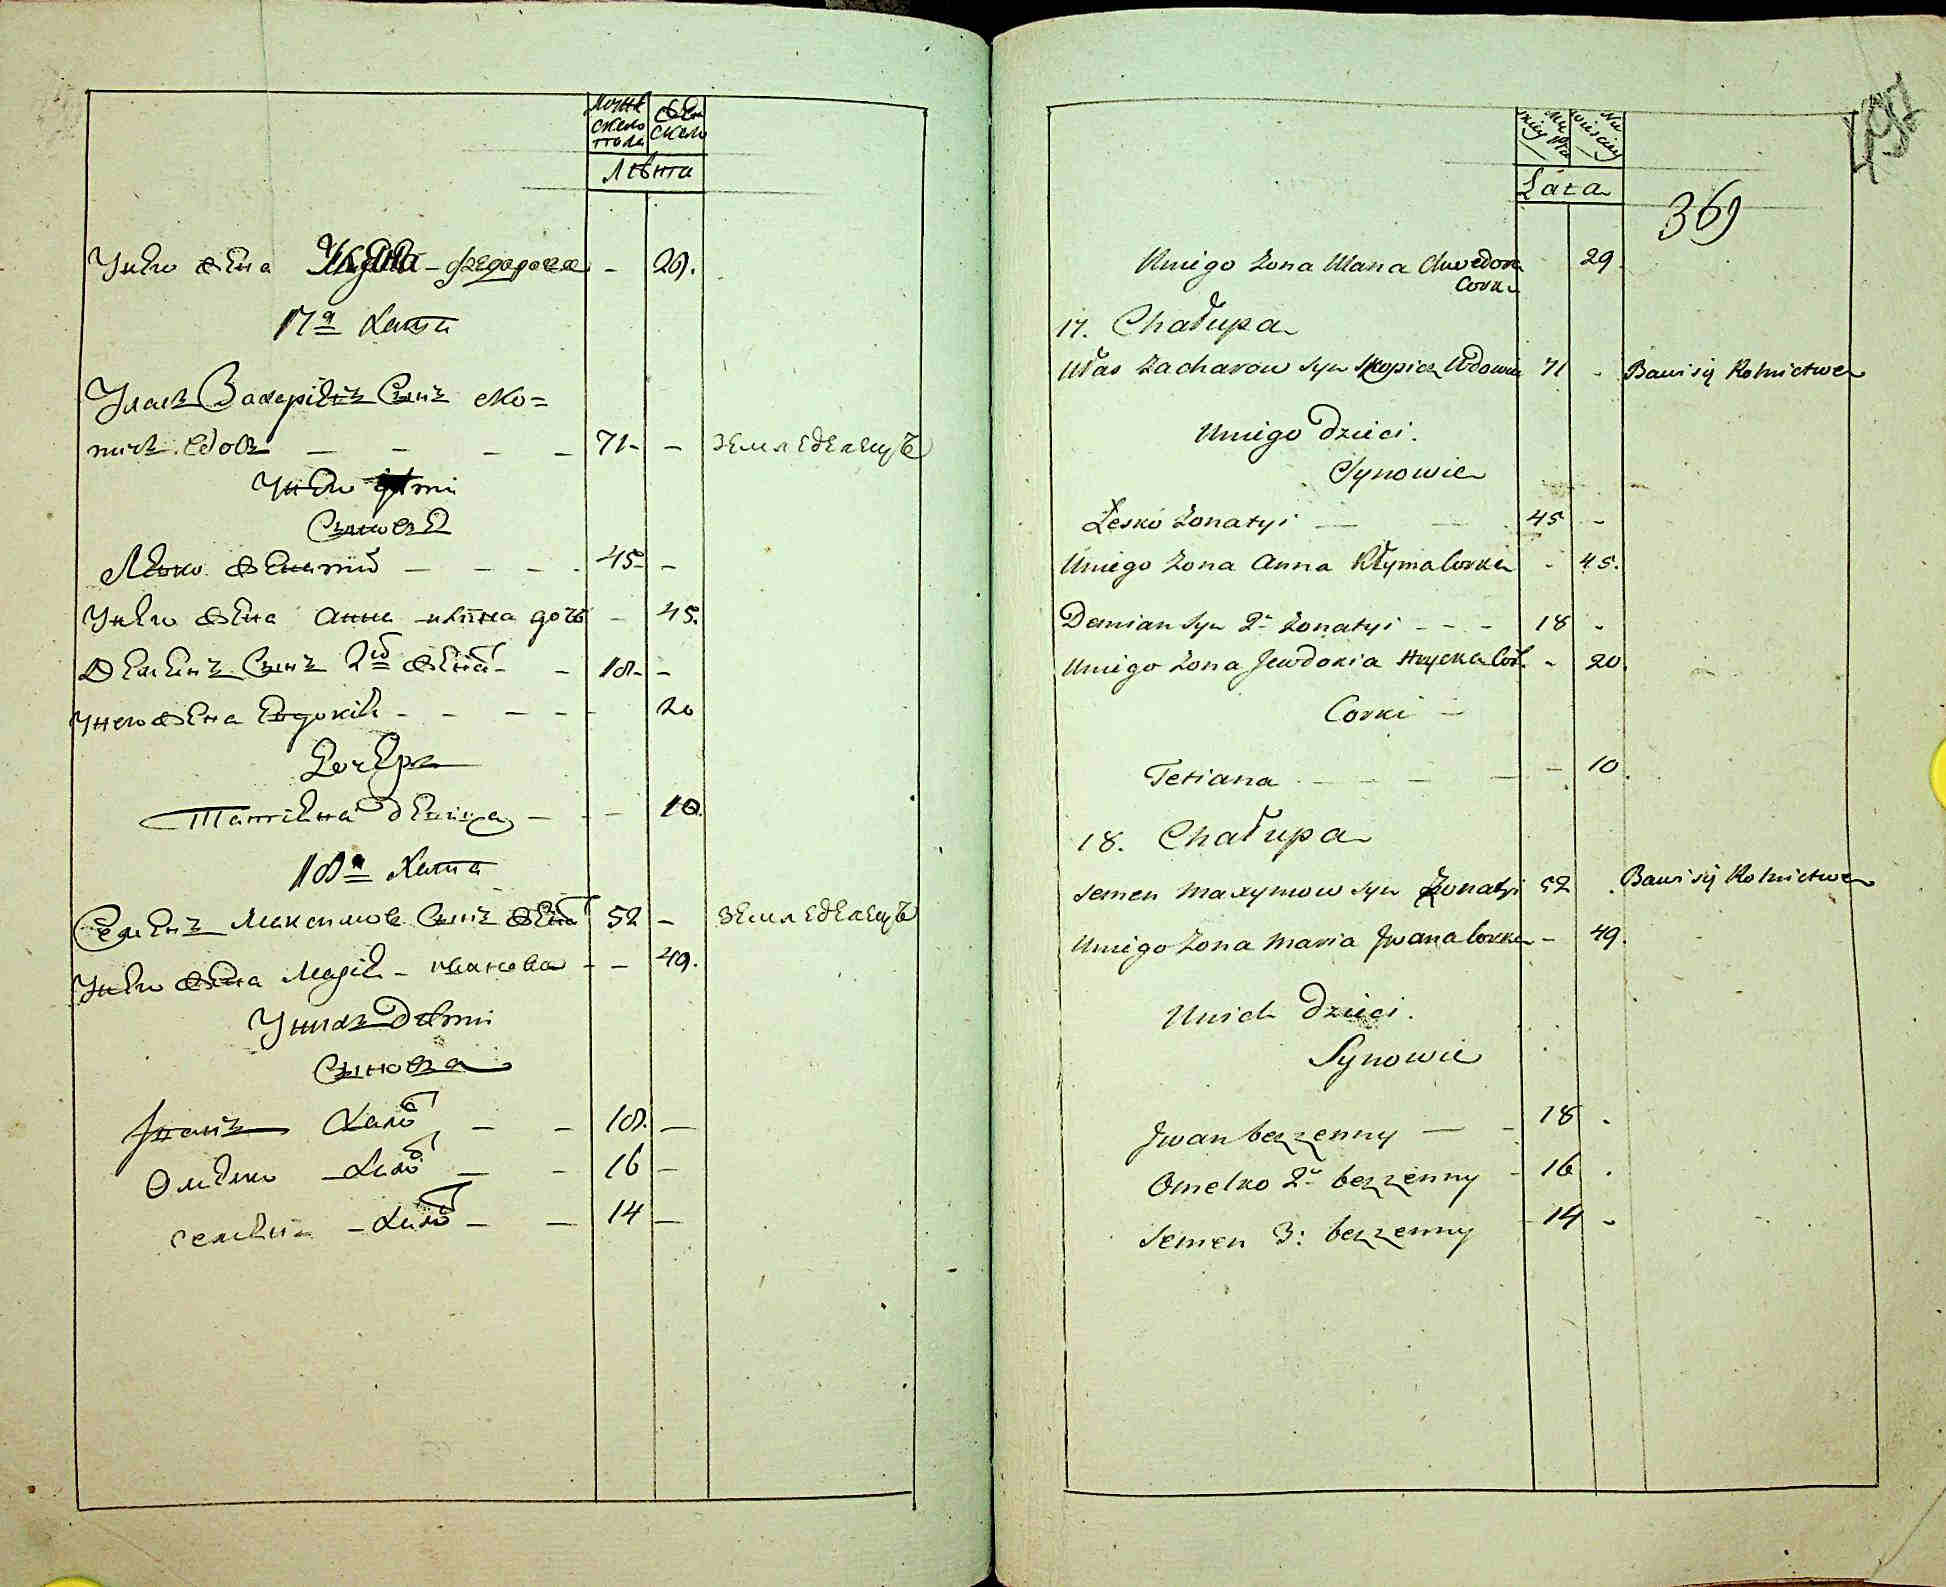 Мужескаго пола
Женскаго
Лѣта
У него жена Ульяна Федорова - 29.
17я Хата
Уласъ Захаріевъ Сынъ ско=
пичъ вдовъ - - - - 71 - земледелецъ
У него дѣти
Сыновья
Леско женатый - - - 45 -
У него жена анна клима дочь - 45.
Деменъ Сынъ 2й женатъ - - 18 -
У него жена Евдокія - - - - 20
Дочери
Татіяна девица - - - 10.
18я Хата
Семенъ Максимовъ Сынъ женатъ 52 - земледелецъ
У него жена Марія - иванова - - 49.
У нихъ Дѣти
Сыновья
Іванъ Холо - - 18. -
Омелко - Холо - - 16 -
семенъ - Холо - - 14 -
Męzkiey Płci
Niewieściey
Lata
497
369
Uniego Zona Ulana Chwedora 29
Corka
17. Chałupa
Ułas Zacharow Syn Skopicz Wdowiec 71 - Bawi się Rolnictwem
Uniego Dzieci.
Synowie
Łesko Zonatyi - - 45 -
Uniego Zona Anna Kłyma Corka - 45.
Demian Syn 2. Zonatyi - - - 18 -
Uniego Zona Jewdokia Hrycka Cor. - 20.
Corki -
Tetiana - - - - - 10.
18. Chałupa
Semen Maxymow Syn Zonatyi 52 . Bawi się Rolnictwem
Uniego Zona Maria Jwana Corka - 49.
Unich Dzieci.
Synowie
Jwan bezzenny - - 18 .
Omelko 2. bezzenny - 16 .
Semen 3: bezzenny - 14 -